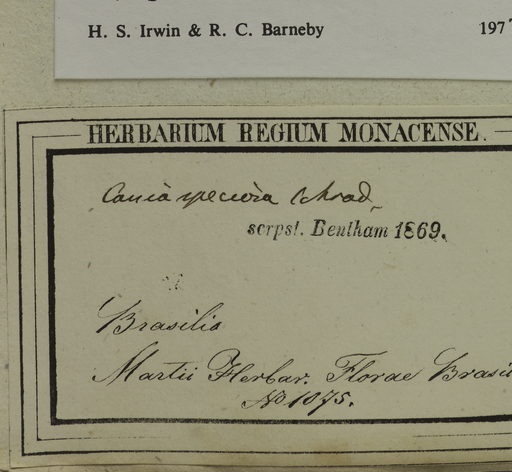 H. S. Irwin & R. C. Barneby 197
HERBARIUM REGIUM MONACENSE.
Cassia speciosa Schrad.
scrpst. Bentham 1869.
Brasilia
Martii Herbar. Florae Brasil
No 1075.